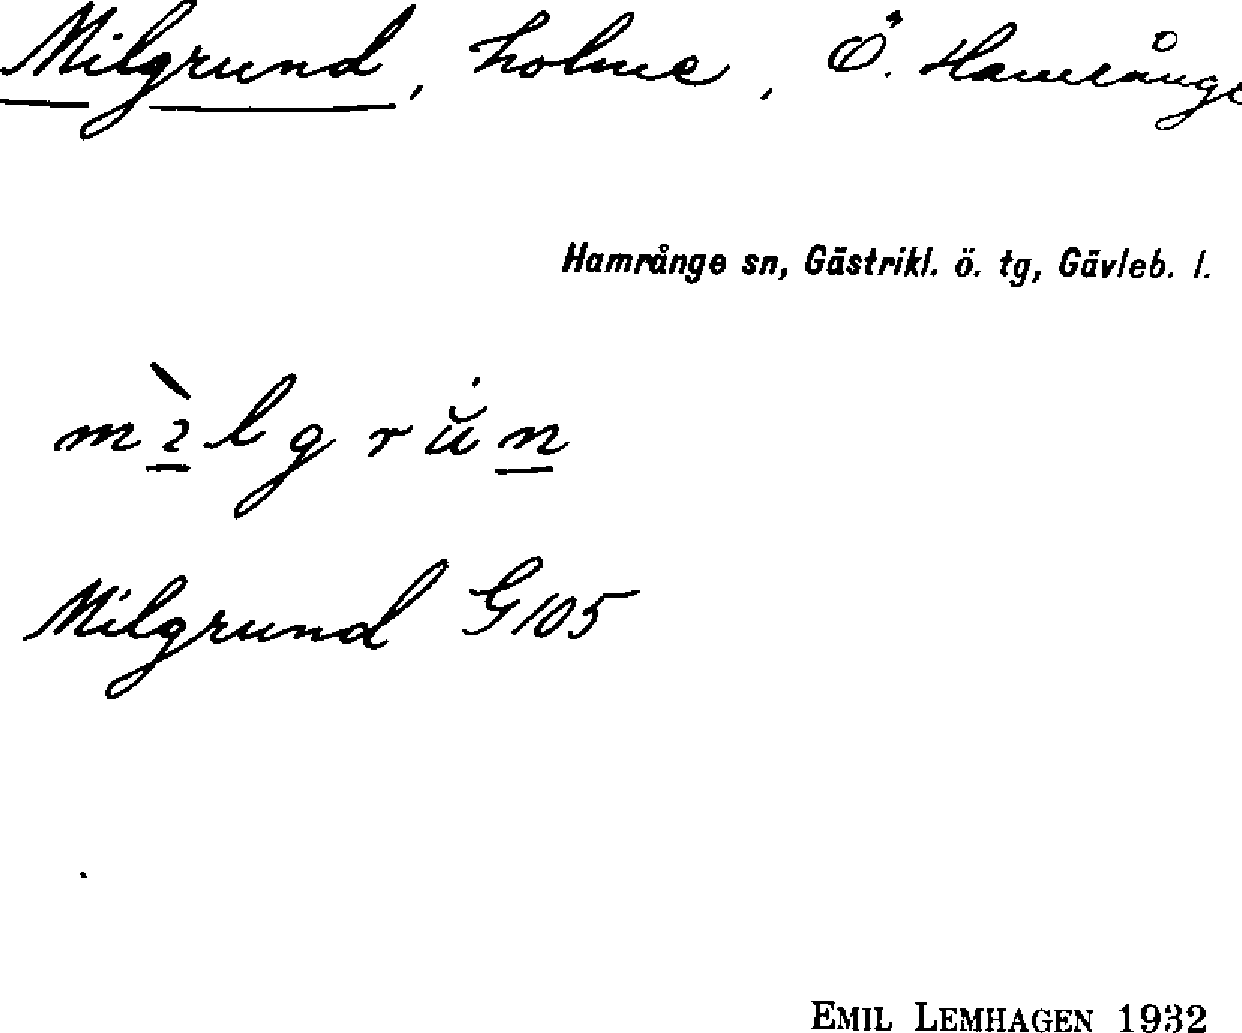 Milgrund, holme, Ö. Hamrånge
Hamrånge sn, Gästrikl. ö. tg, Gävleb. l.
Milgrund G105
EMIL LEMHAGEN 1932